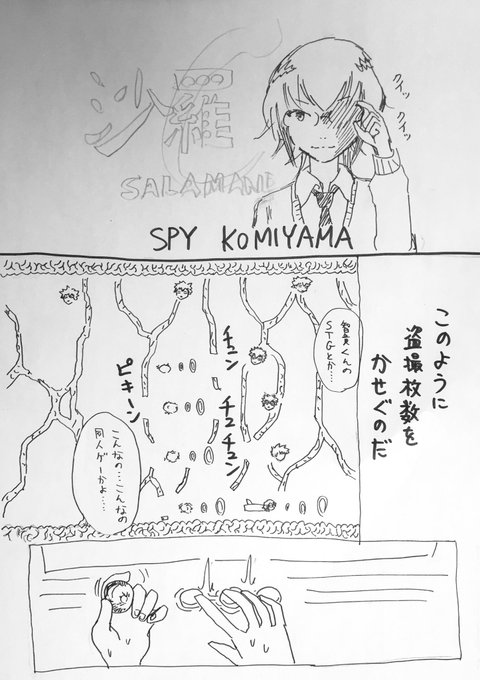 沙羅
SALAMAN
クイッ
クイッ
SPY KOMIYAMA
このように
盗撮枚数を
かせぐのだ
智貴くんの
STGとか…
チュン
チュ
チュン
ピキーン
こんなの…こんなの
同人ゲーかよ……